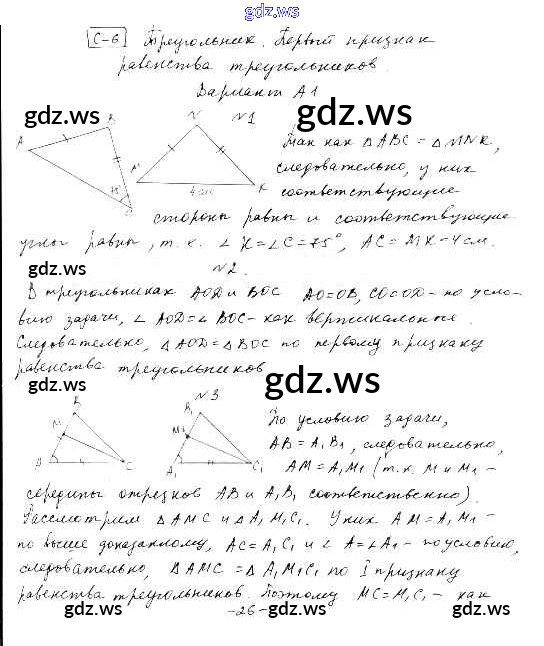 gdz.ws
С-6 Треугольник. Первый признак
равенства треугольников.
Вариант А1
gdz.ws gdz.ws
A B C 75°
M N K 4 см
№1
Так как △ABC = △MNK,
следовательно, у них
соответствующие
стороны равны и соответствующие
углы равны, т.к. ∠K=∠C=75°, AC=MK=4см.
gdz.ws
№2.
В треугольниках AOD и BOC AO=OB, CO=OD - по усло-
вию задачи, ∠AOD=∠BOC - как вертикальные.
Следовательно, △AOD=△BOC по первому признаку
gdz.ws
равенства треугольников
gdz.ws
№3
B M A C
B₁ M₁ A₁ C₁
По условию задачи,
AB=A₁B₁, следовательно,
AM=A₁M₁ (т.к. M и M₁ -
середины отрезков AB и A₁B₁ соответственно).
Рассмотрим △AMC и △A₁M₁C₁. У них AM=A₁M₁ -
по выше доказанному, AC=A₁C₁ и ∠A=∠A₁ - по условию,
следовательно, △AMC=△A₁M₁C₁ по I признаку
равенства треугольников. Поэтому MC=M₁C₁ - как
gdz.ws -26- gdz.ws gdz.ws